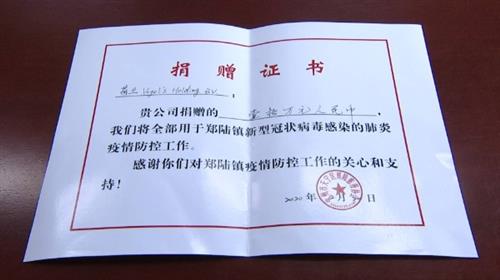 捐赠证书
荷兰
Holding BV,
贵公司捐赠的 壹拾万元人民币,
我们将全部用于郑陆镇新型冠状病毒感染的肺炎
疫情防控工作。
感谢你们对郑陆镇疫情防控工作的关心和支
持!
2020年 月 日